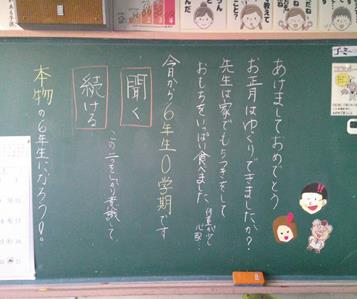 あけましておめでとう
お正月はゆっくりできましたか？
先生は家でもちつきをして
おもちをいっぱい食べました。
今日から6年生0学期です
聞く
続ける
この二つをしっかり意識して
本物の6年生になろう！